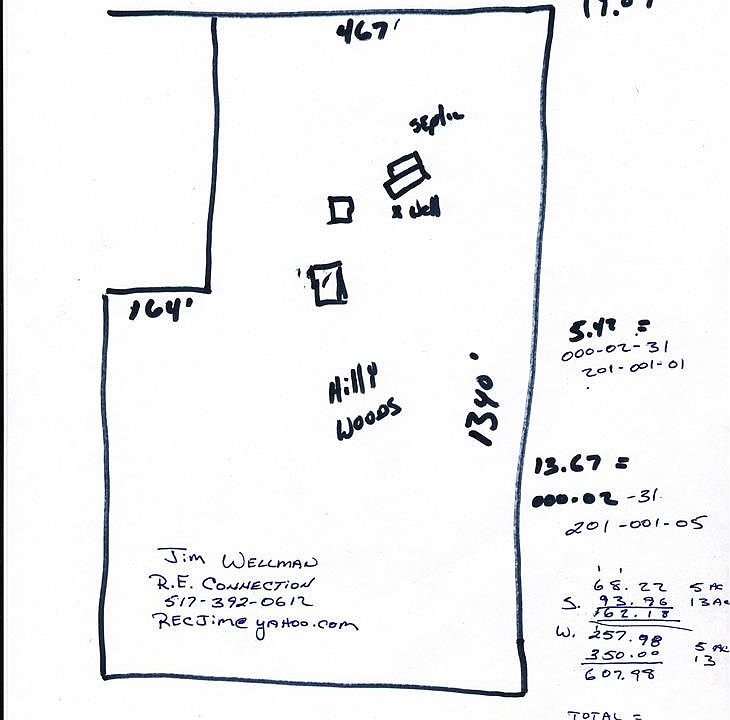 467'
septic
x Well
164'
5.42 =
000-02-31
201-001-01
Hilly
Woods
1340'
13.67 =
000.02-31
201-001-05
Jim Wellman
R.E. Connection
517-392-0612
RECJim@yahoo.com
68.22 5 AC
S. 93.96 13 AC
162.18
W. 257.98 5 AC
350.00 13
607.98
TOTAL =